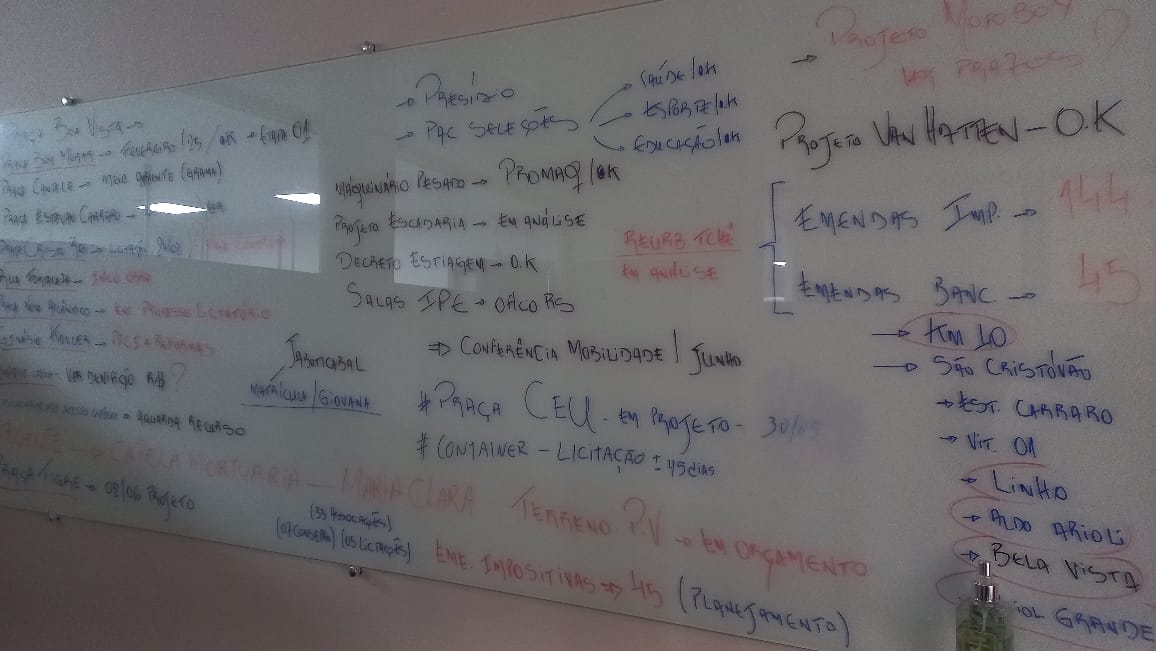 Boa Vista →
Boa Morar → Fevereiro/25/OK → Etapa 01
Praça Canela → Meio Ambiente (Grama)
Praça Estevan Carraro →
Início Obra
→ Em Processo Licitatório
Koller →
Ver Benefício R$?
→ Aguarda Recurso
→ Capela Mortuária — Maria Clara
Praça Tigre → 02/06 Projeto
→ Presídio
→ PAC Seleções
→ Saúde/OK
→ Esporte/OK
→ Educação/OK
Maquinário Pesado → Promaq/OK
Projeto Escadaria → Em Análise
Decreto Estiagem → O.K
Salas IPE → Ofício RS
Reurb Tchê
Em Análise
Jaboticabal
Matrícula/Giovana
⇒ Conferência Mobilidade / Junho
# Praça CEU - Em Projeto - 30/05
# Container - Licitação ± 45 dias
Terreno P.V → Em Orçamento
(33 Associações)
(07 Consepro) (05 Licitações)
Eme. Impositivas ⇒ 45 (Planejamento)
→ Projeto Motoboy ?
Ver Prazos
Projeto Van Hatten - O.K
Emendas Imp. → 144
Emendas Banc. → 45
→ KM 10
→ São Cristóvão
→ Est. Carraro
→ Vit. 01
→ Linho
→ Aldo Arioli
→ Bela Vista
Grande